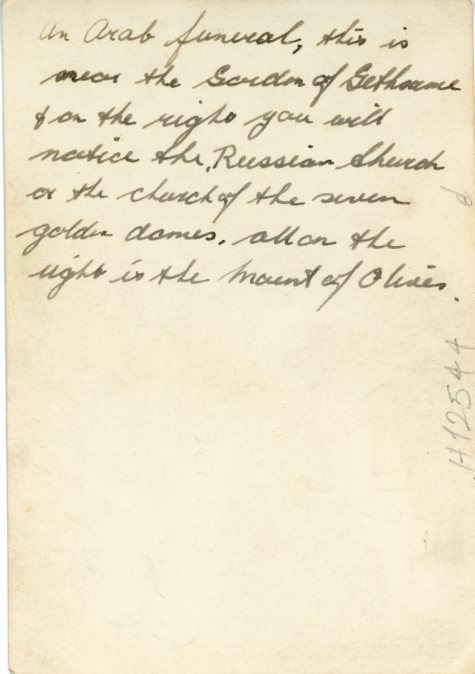 An Arab funeral, this is
near the Garden of Gethsame
& on the right you will
notice the Russian Church
or the church of the seven
golden domes. all on the
right is the Mount of Olives.
d
H12544